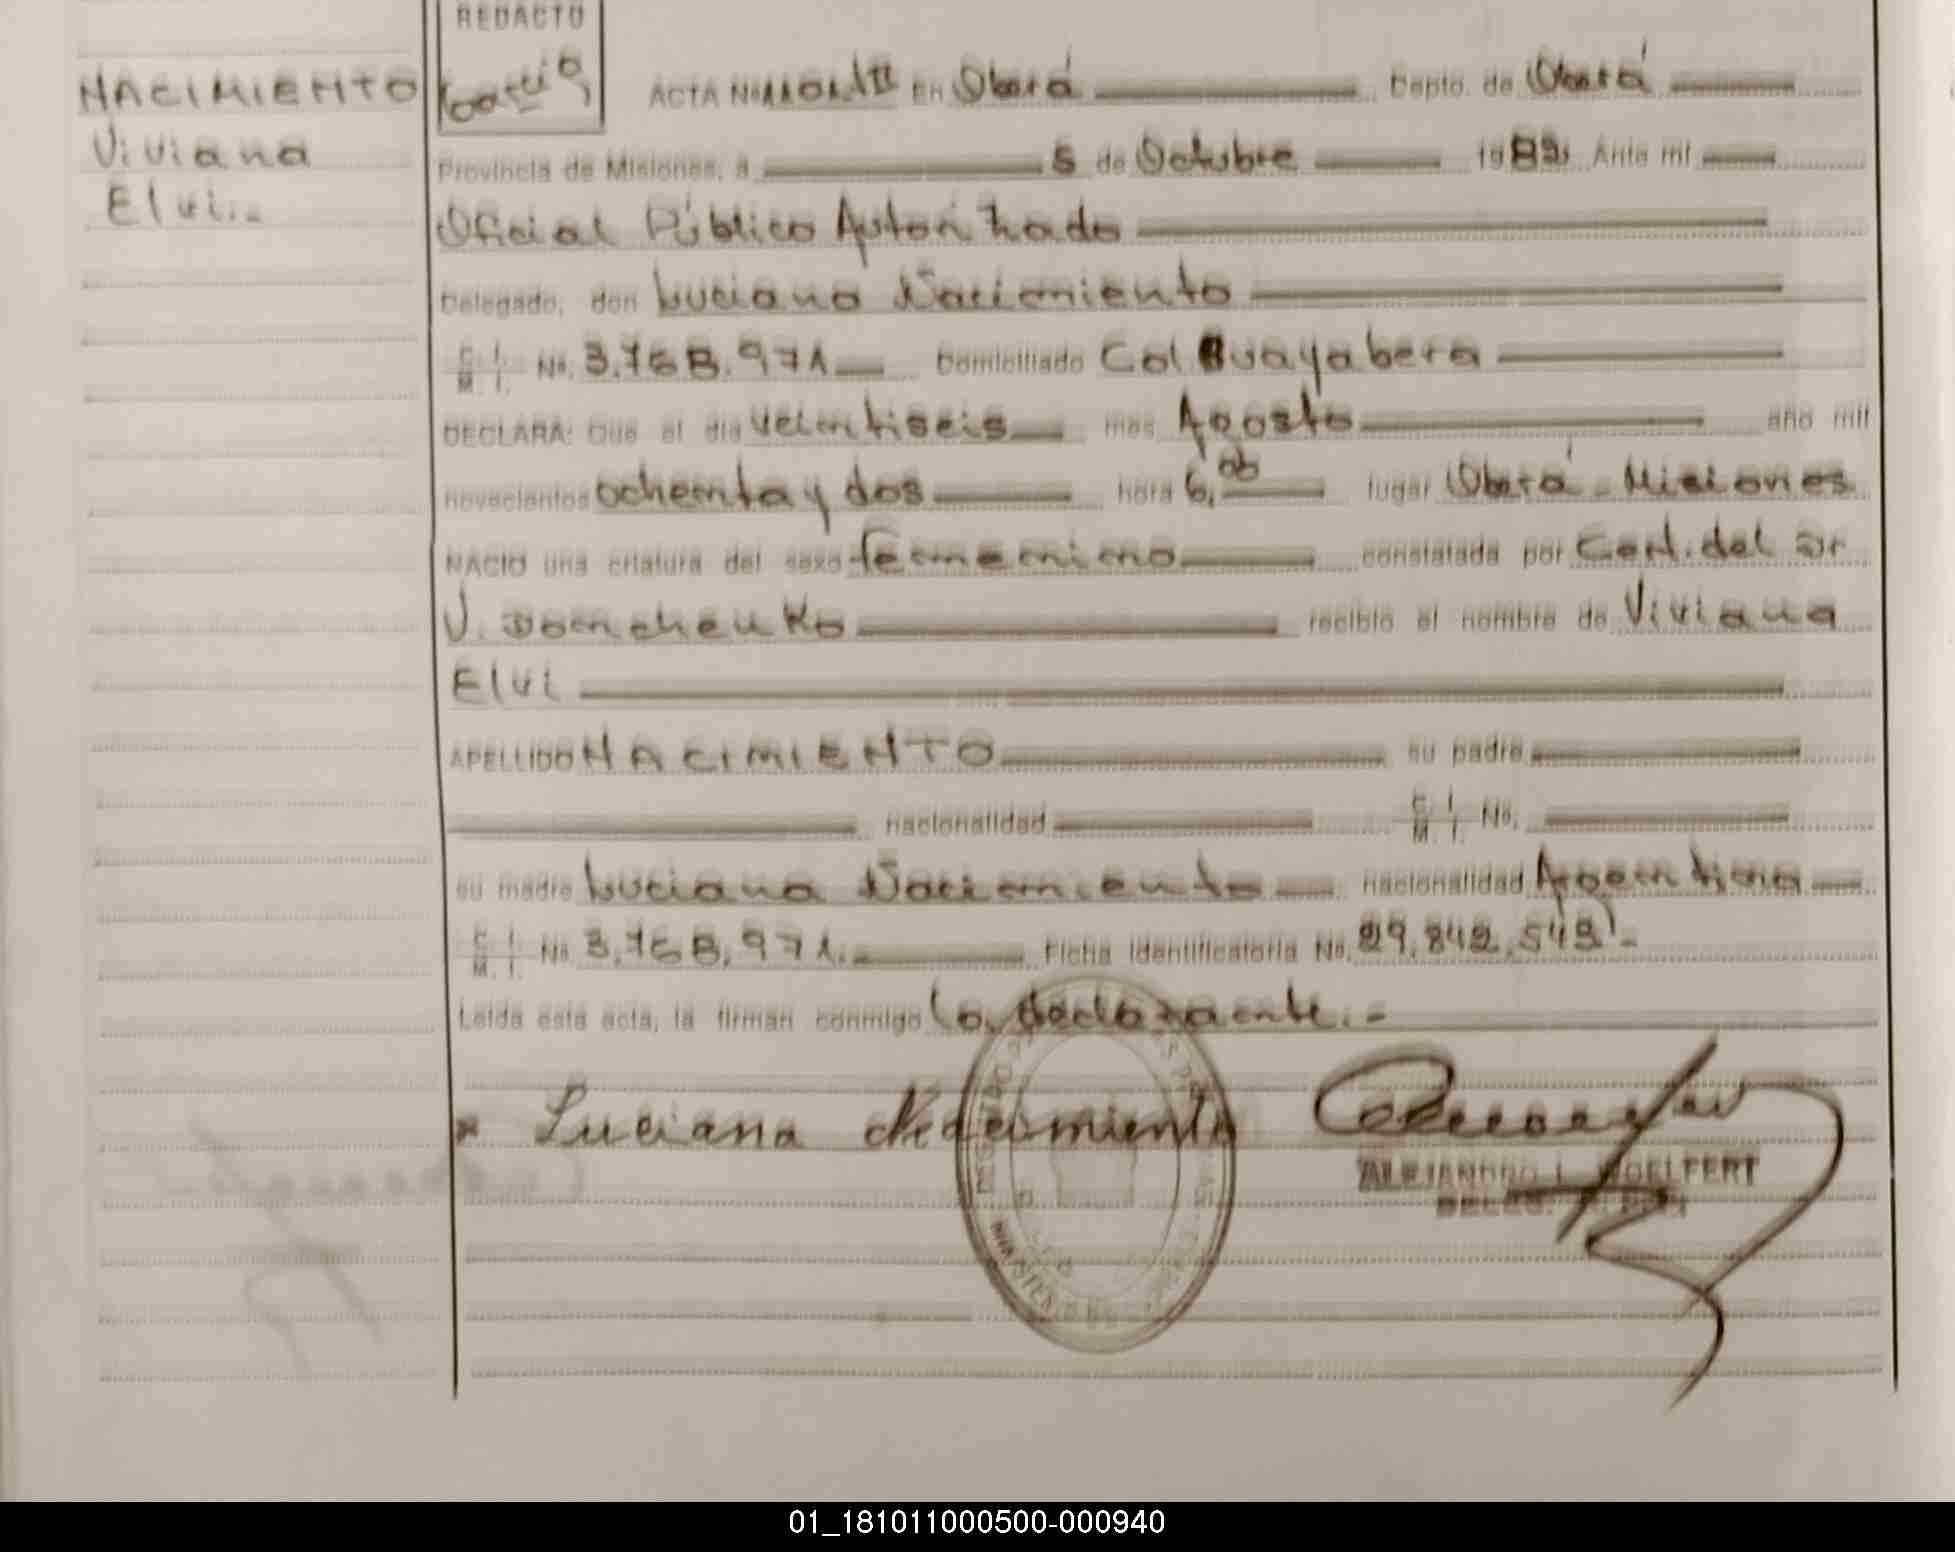 NACIMIENTO
Viviana
Elvi.-
REDACTO
ACTA Nº 1101 II EN Oberá Depto. de Oberá
Provincia de Misiones, a 5 de Octubre 1982. Ante mí
Oficial Público Autorizado
Delegado, don Luciana Nacimiento
C. I. M. I. Nº. 3.768.971 Domiciliado Col Guayabera
DECLARA: Que el día veintiseis mes Agosto año mil
novecientos ochenta y dos hora 6, lugar Oberá - Misiones
NACIO una criatura del sexo femenino constatada por Cert. del Dr
V. Domchenko recibió el nombre de Viviana
Elvi
APELLIDO NACIMIENTO su padre
nacionalidad C. I. M. I. Nº.
su madre Luciana Nacimiento nacionalidad Argentina
C. I. M. I. Nº 3.768.971. Ficha Identificatoria No. 29.842.543.-
Leída esta acta, la firman conmigo la declarante.-
Luciana Nacimiento
ALEJANDRO L. WOELFERT
01_181011000500-000940